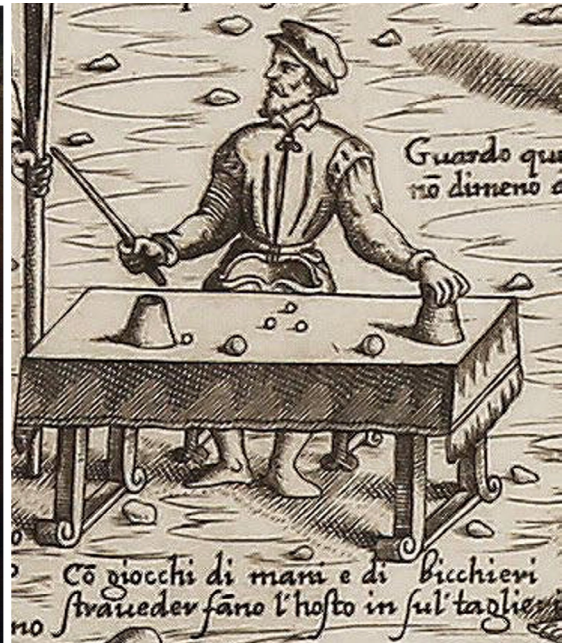 Guardo qu
nō dimeno
Cō giocchi di mani e di bicchieri
straueder fāno l'hosto in sul'taglie
no